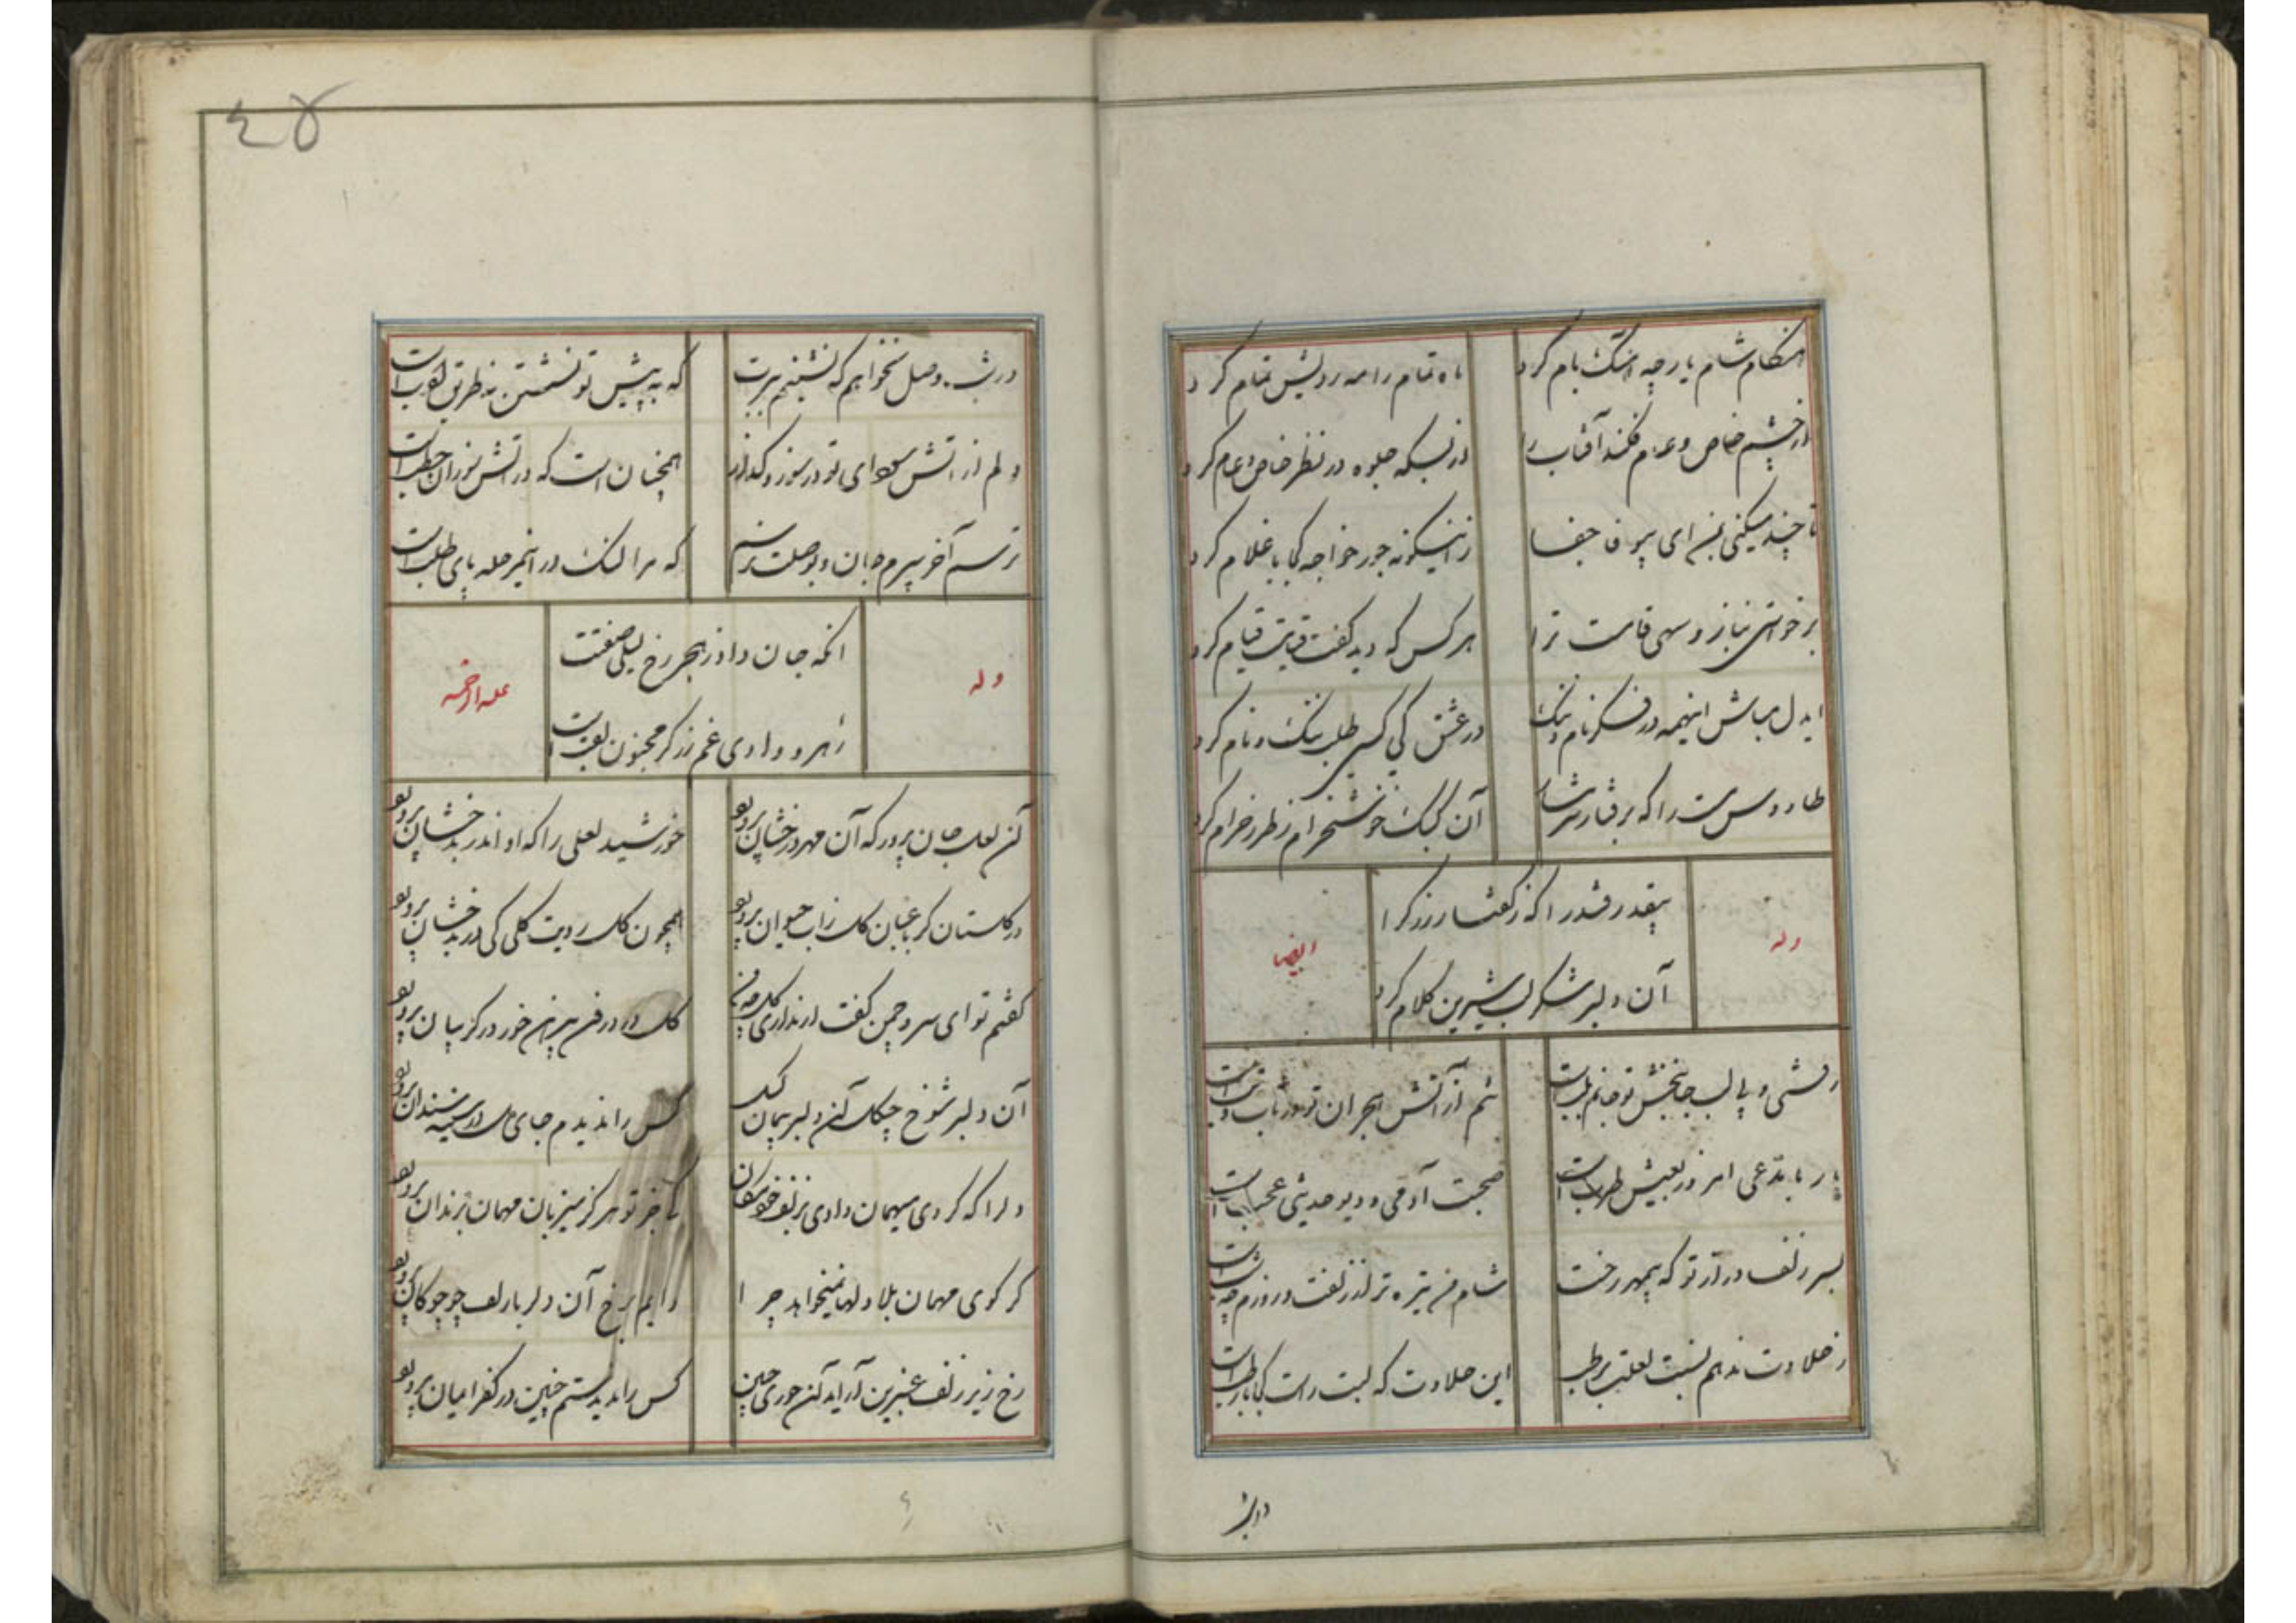 هنگام شام یار چه آهنگ بام کرد
ماه تمام را مه رویش تمام کرد
از چشم خاص و عام فکند آفتاب را
از بسکه جلوه در نظر خاص و عام کرد
تا چند میکنی بمن ای بیوفا جفا
زاینگونه جور خواجه کجا با غلام کرد
برخواستی بناز و سهی قامت ترا
هر کس که دید گفت قیامت قیام کرد
ایدل مباش اینهمه در فکر نام و ننگ
در عشق کی کسی طلب ننگ و نام کرد
طاووس مست را که برفتار
آن کبک خوشخرام ز طرز خرام کرد
بیقدر قند را که ز گفتار
آن دلبر شکر لب شیرین کلام کرد
وله
ایضا
رفتی و بی لب جانبخش تو جانم بلب است
تنم از آتش هجران تو در تاب و تب است
یار با مدعی امروز بعیش طرب است
صحبت آدمی و دیو حدیثی عجب است
بسر زلف در آن تو که بیمهر رخت
شام من تیره تر از زلفت و روزم چه شب است
ز حلاوت ندهم نسبت لعلت برطب
این حلاوت که لبت راست کجا با رطب است
در شب
در شب وصل نخواهم که نشینم ببرت
که به پیش تو نشستن نه طریق ادب است
دلم از آتش سودای تو در سوز و گداز
همچنان است که در آتش سوزان حطب است
ترسم آخر سپرم جان و بوصلت نرسم
که مرا لنگ در این مرحله پای طلب است
آنکه جان داد ز هجر رخ لیلی صفتت
رهرو وادی غم زکر مجنون لقب است
وله
علیه الرحمه
کن لعب جان پرور که آن مهر درخشان پرورد
خورشید لعلی را که او اندر بدخشان پرورد
در گلستان گر باغبان گل زاب حیوان پرورد
همچون گل رویت گلی کی در بدخشان پرورد
گفتم تو ای سرو چمن گفت ار نداری
گل در بر من خور در گریبان پرورد
آن دلبر شوخ چگل آن دلبر پیمان گسل
کس را ندیدم جای دل در سینه سندان پرورد
دلرا که کردی میهمان دادی بزلف خود مکان
تا جز تو هرگز میزبان مهمان بزندان پرورد
گر گوی مهمان بلا دلها نمیخواهد چرا
دایم برخ آن دلربا زلف چو چوگان پرورد
رخ زیر زلف عنبرین آراید آن حوری جبین
کس را ندیدستم چنین در کفر ایمان پرورد